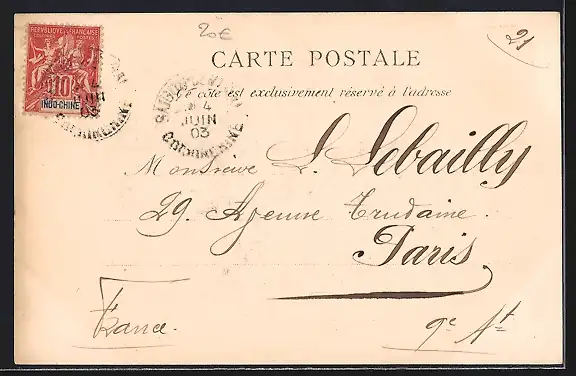 20€
21
RÉPUBLIQUE FRANÇAISE
COLONIES POSTES
10
INDO-CHINE
CARTE POSTALE
Ce côté est exclusivement réservé à l'adresse
4
JUIN
03
COCHINCHINE
Monsieur L. Lebailly
29. Avenue Trudaine.
Paris
France.
9e Art